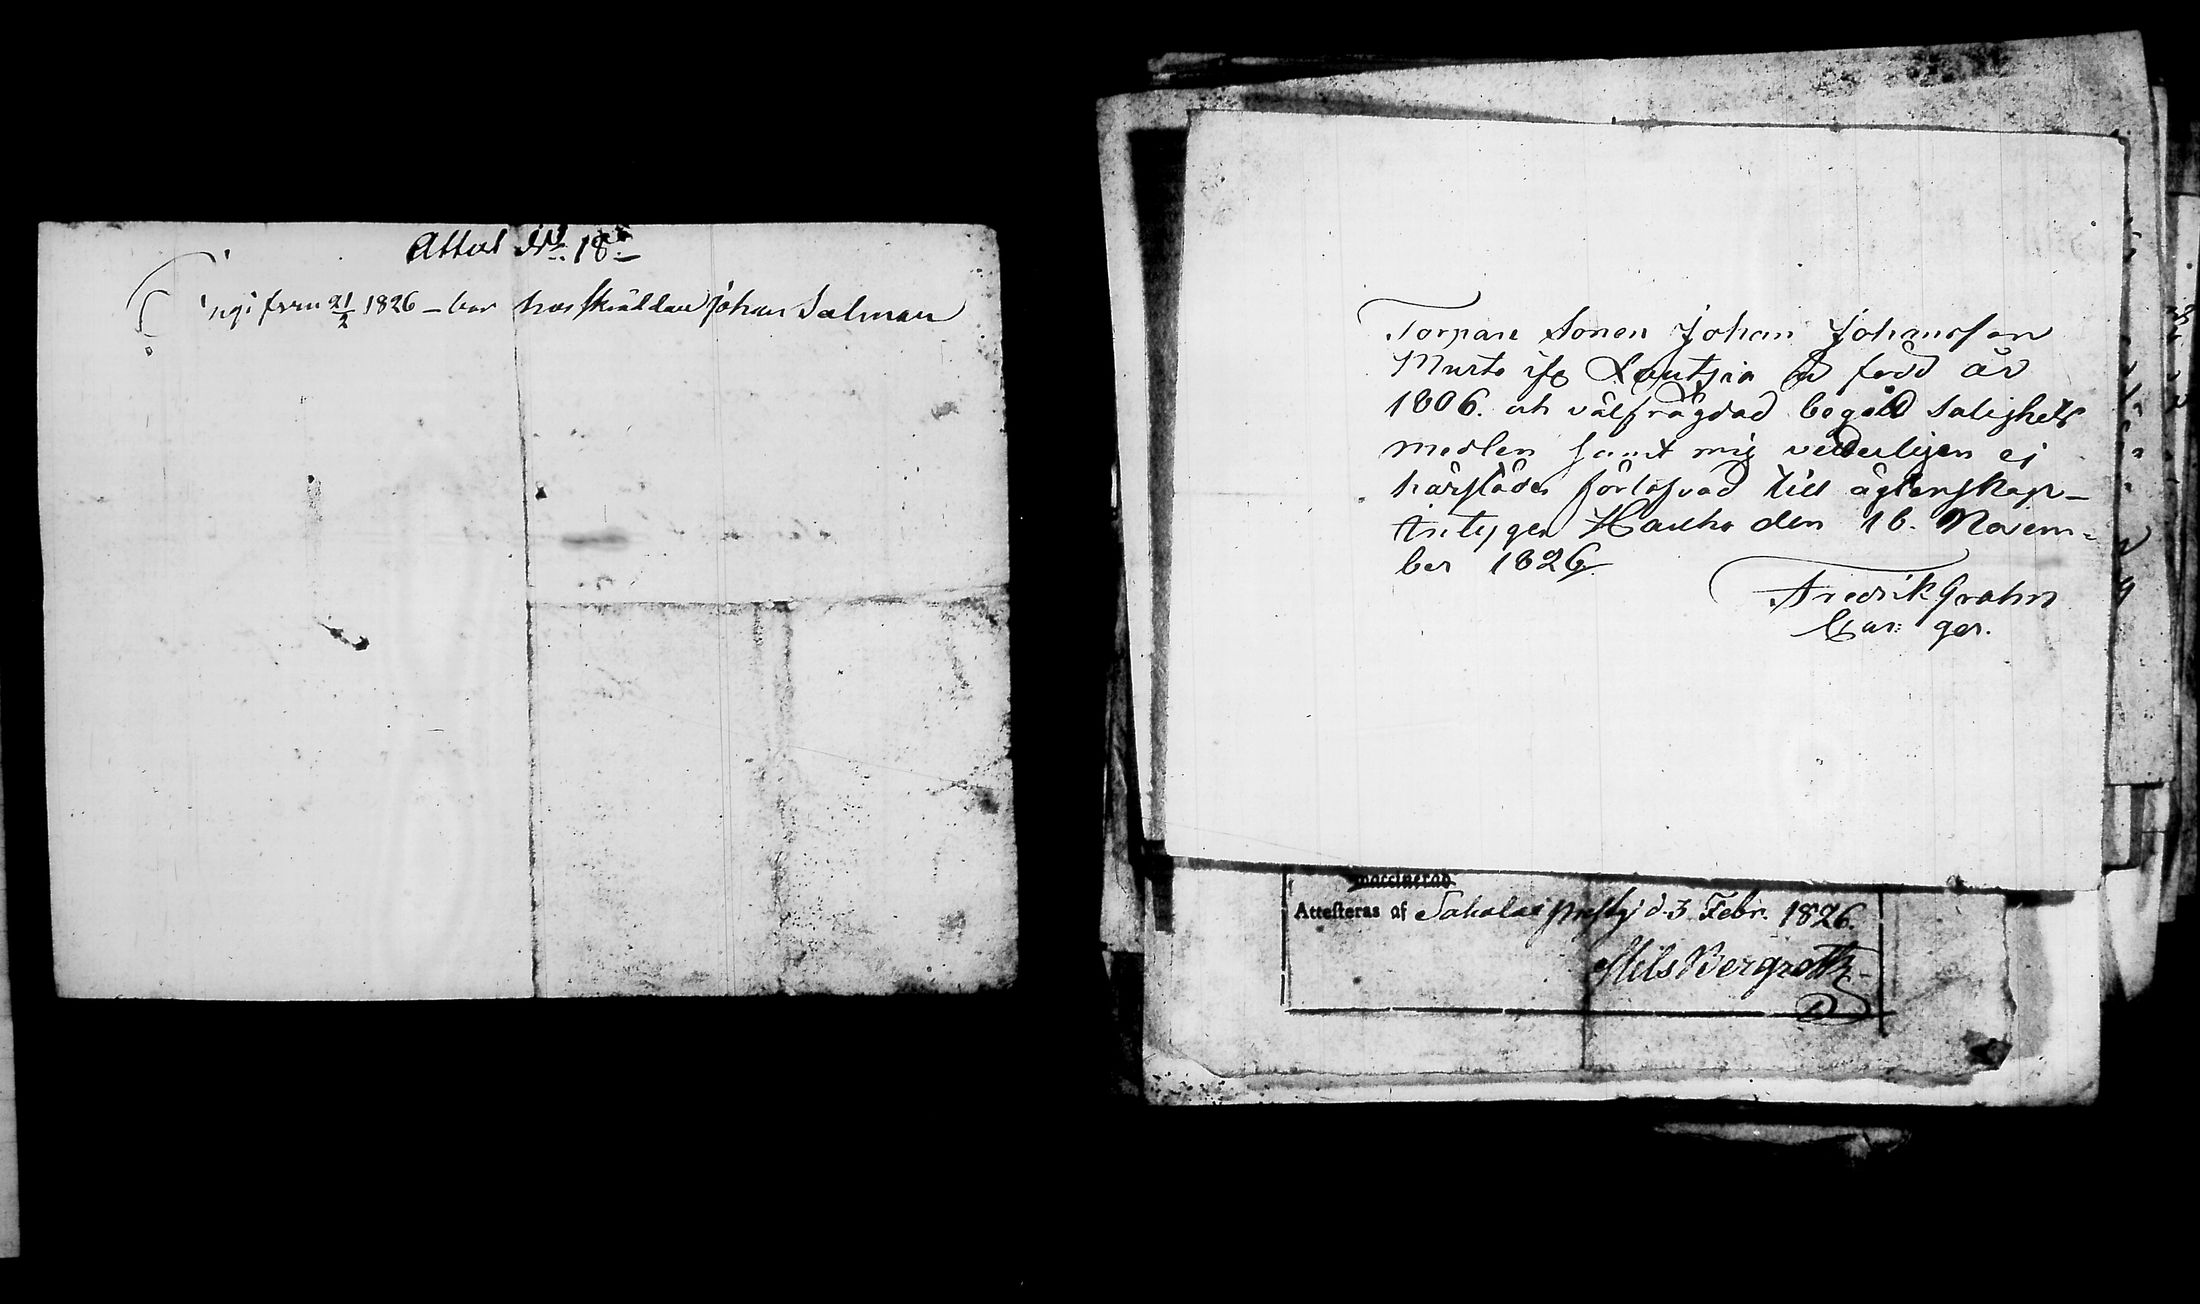 Attest No. 18
ingifven 21/2 1826 – bor hos skräddar Johan Salman
Torpare Sonen Johan Johansson
Musto ifr Lautsia är född år
1806. och välfrägdad begått salighets
medlen samt mig veterligen ej
härstädes förlofvad till ägtenskap –
Intygar Hauho den 16. Novem=
ber 1826.
Fredrik Grahn
ger.
vaccinerad
Attesteras af Sahalax d. 3 Febr. 1826.
Nils Bergroth